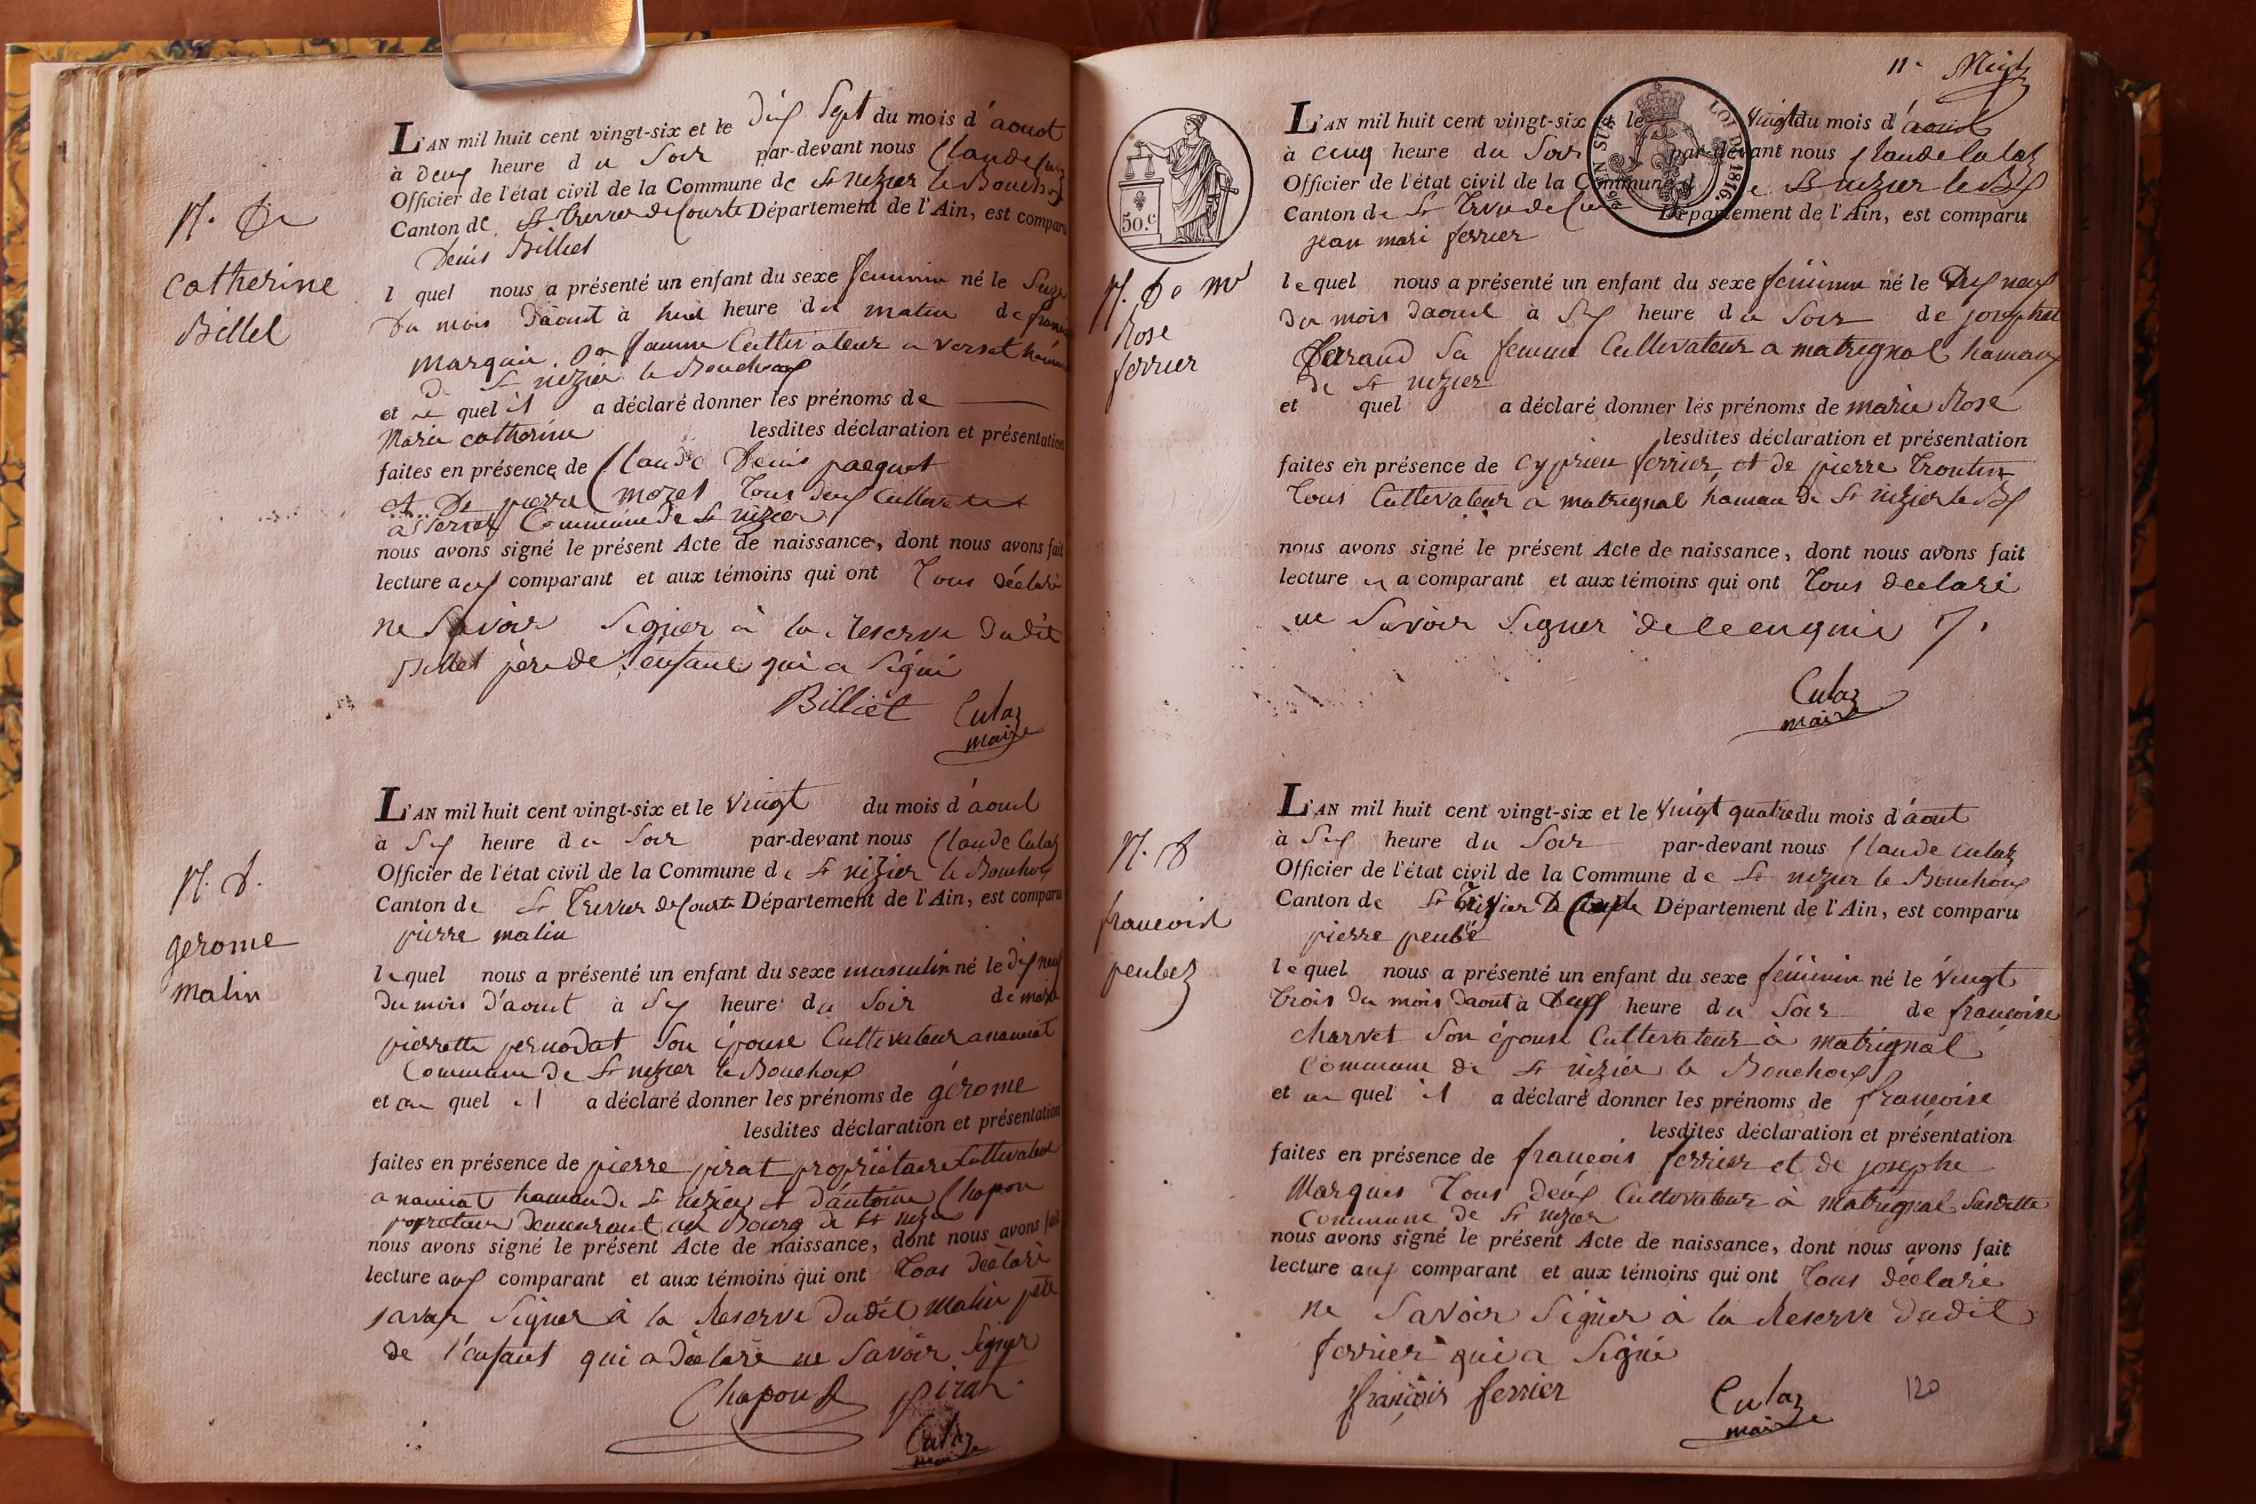 N. De
catherine
Billet
L'AN mil huit cent vingt-six et le dix Sept du mois d'aout
à deux heure du Soir par-devant nous Claude Culaz
Officier de l'état civil de la Commune de St nizier le Bouchoux
Canton de St Trivier de Courte Département de l'Ain, est comparu
Denis Billiet
l quel nous a présenté un enfant du sexe feminin né le Seize
Du mois Daout à huit heure du matin de
marquis Sa famme Cultivateur a Verset
de St nizier le Bouchoux
et au quel il a déclaré donner les prénoms de
Marie catherine lesdites déclaration et présentation
faites en présence de Claude Denis pacquet
et De pierre morel Tous deux Cultivateur
a Verset Commune de St nizier
nous avons signé le présent Acte de naissance, dont nous avons fait
lecture aux comparant et aux témoins qui ont Tous déclaré
ne Savoir Signer à la Reserve Dudit
Billet père de l'enfant qui a Signé
Billiet Culaz
maire
N. D.
gerome
malin
L'AN mil huit cent vingt-six et le Vingt du mois d'aout
à Six heure du Soir par-devant nous Claude Culaz
Officier de l'état civil de la Commune de St nizier le Bouchoux
Canton de St Trivier de Courte Département de l'Ain, est comparu
pierre malin
lequel nous a présenté un enfant du sexe masculin né le dix neuf
Du mois d'aout à Six heure du Soir de marie
pierrette pernodat Son épouse Cultivateur a nanciat
Commune De St nizier le Bouchoux
et au quel il a déclaré donner les prénoms de gérome
lesdites déclaration et présentation
faites en présence de pierre pirat propriétaire Cultivateur
a nanciat hamau de St nizier et d'antoine Chapon
propriétaire Demeurant au Bourg de St nizier
nous avons signé le présent Acte de naissance, dont nous avons fait
lecture aux comparant et aux témoins qui ont Tous Déclaré
savoir Signer à la Reserve Dudit malin père
de l'enfant qui a déclaré ne Savoir Signer
Chapon pirat
Culaz
maire
11e
50.c
EN SUS LOI DE 1816.
N. De mr
Rose
ferrier
L'AN mil huit cent vingt-six et le Vingt du mois d'aout
à cinq heure du Soir par-devant nous Claude Culaz
Officier de l'état civil de la Commune de St nizier le Bx
Canton de St Trivier de Département de l'Ain, est comparu
jean mari ferrier
lequel nous a présenté un enfant du sexe féminin né le Dix neuf
du mois Daout à Six heure du Soir de josephte
feraud Sa femme Cultivateur a matrignal hamau
de St nizier
et quel a déclaré donner les prénoms de marie Rose
lesdites déclaration et présentation
faites en présence de cyprien ferrier et de pierre
Tous Cultivateur a matrignal hamau de St nizier le Bx
nous avons signé le présent Acte de naissance, dont nous avons fait
lecture a comparant et aux témoins qui ont Tous declaré
ne Savoir Signer de ce enquis
Culaz
maire
N. D
francoise
peubez
L'AN mil huit cent vingt-six et le Vingt quatre du mois d'aout
à Six heure du Soir par-devant nous Claude Culaz
Officier de l'état civil de la Commune de St nizier le Bouchoux
Canton de St Département de l'Ain, est comparu
pierre peubé
lequel nous a présenté un enfant du sexe féminin né le Vingt
Trois Du mois Daout à Deux heure du Soir de francoise
charvet Son épouse Cultivateur à matrignal
Commune de St nizier le Bouchoux
et au quel il a déclaré donner les prénoms de francoise
lesdites déclaration et présentation
faites en présence de francois ferrier et de josephe
Marquis Tous deux Cultivateur à matrignal Susditte
Commune de St nizier
nous avons signé le présent Acte de naissance, dont nous avons fait
lecture aux comparant et aux témoins qui ont Tous déclaré
ne Savoir Signer à la Reserve Dudit
ferrier qui a Signé
françois ferrier Culaz
maire
120